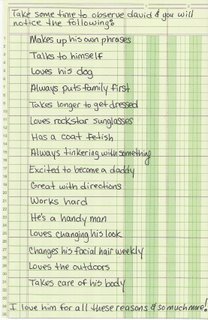 Take some time to observe david & you will
notice the following:
Makes up his own phrases
Talks to himself
Loves his dog
Always puts family first
Takes longer to get dressed
Loves rockstar sunglasses
Has a coat fetish
Always tinkering with something
Excited to become a daddy
Great with directions
Works hard
He's a handy man
Loves changing his look
Changes his facial hair weekly
Loves the outdoors
Takes care of his body
I love him for all these reasons & so much more!